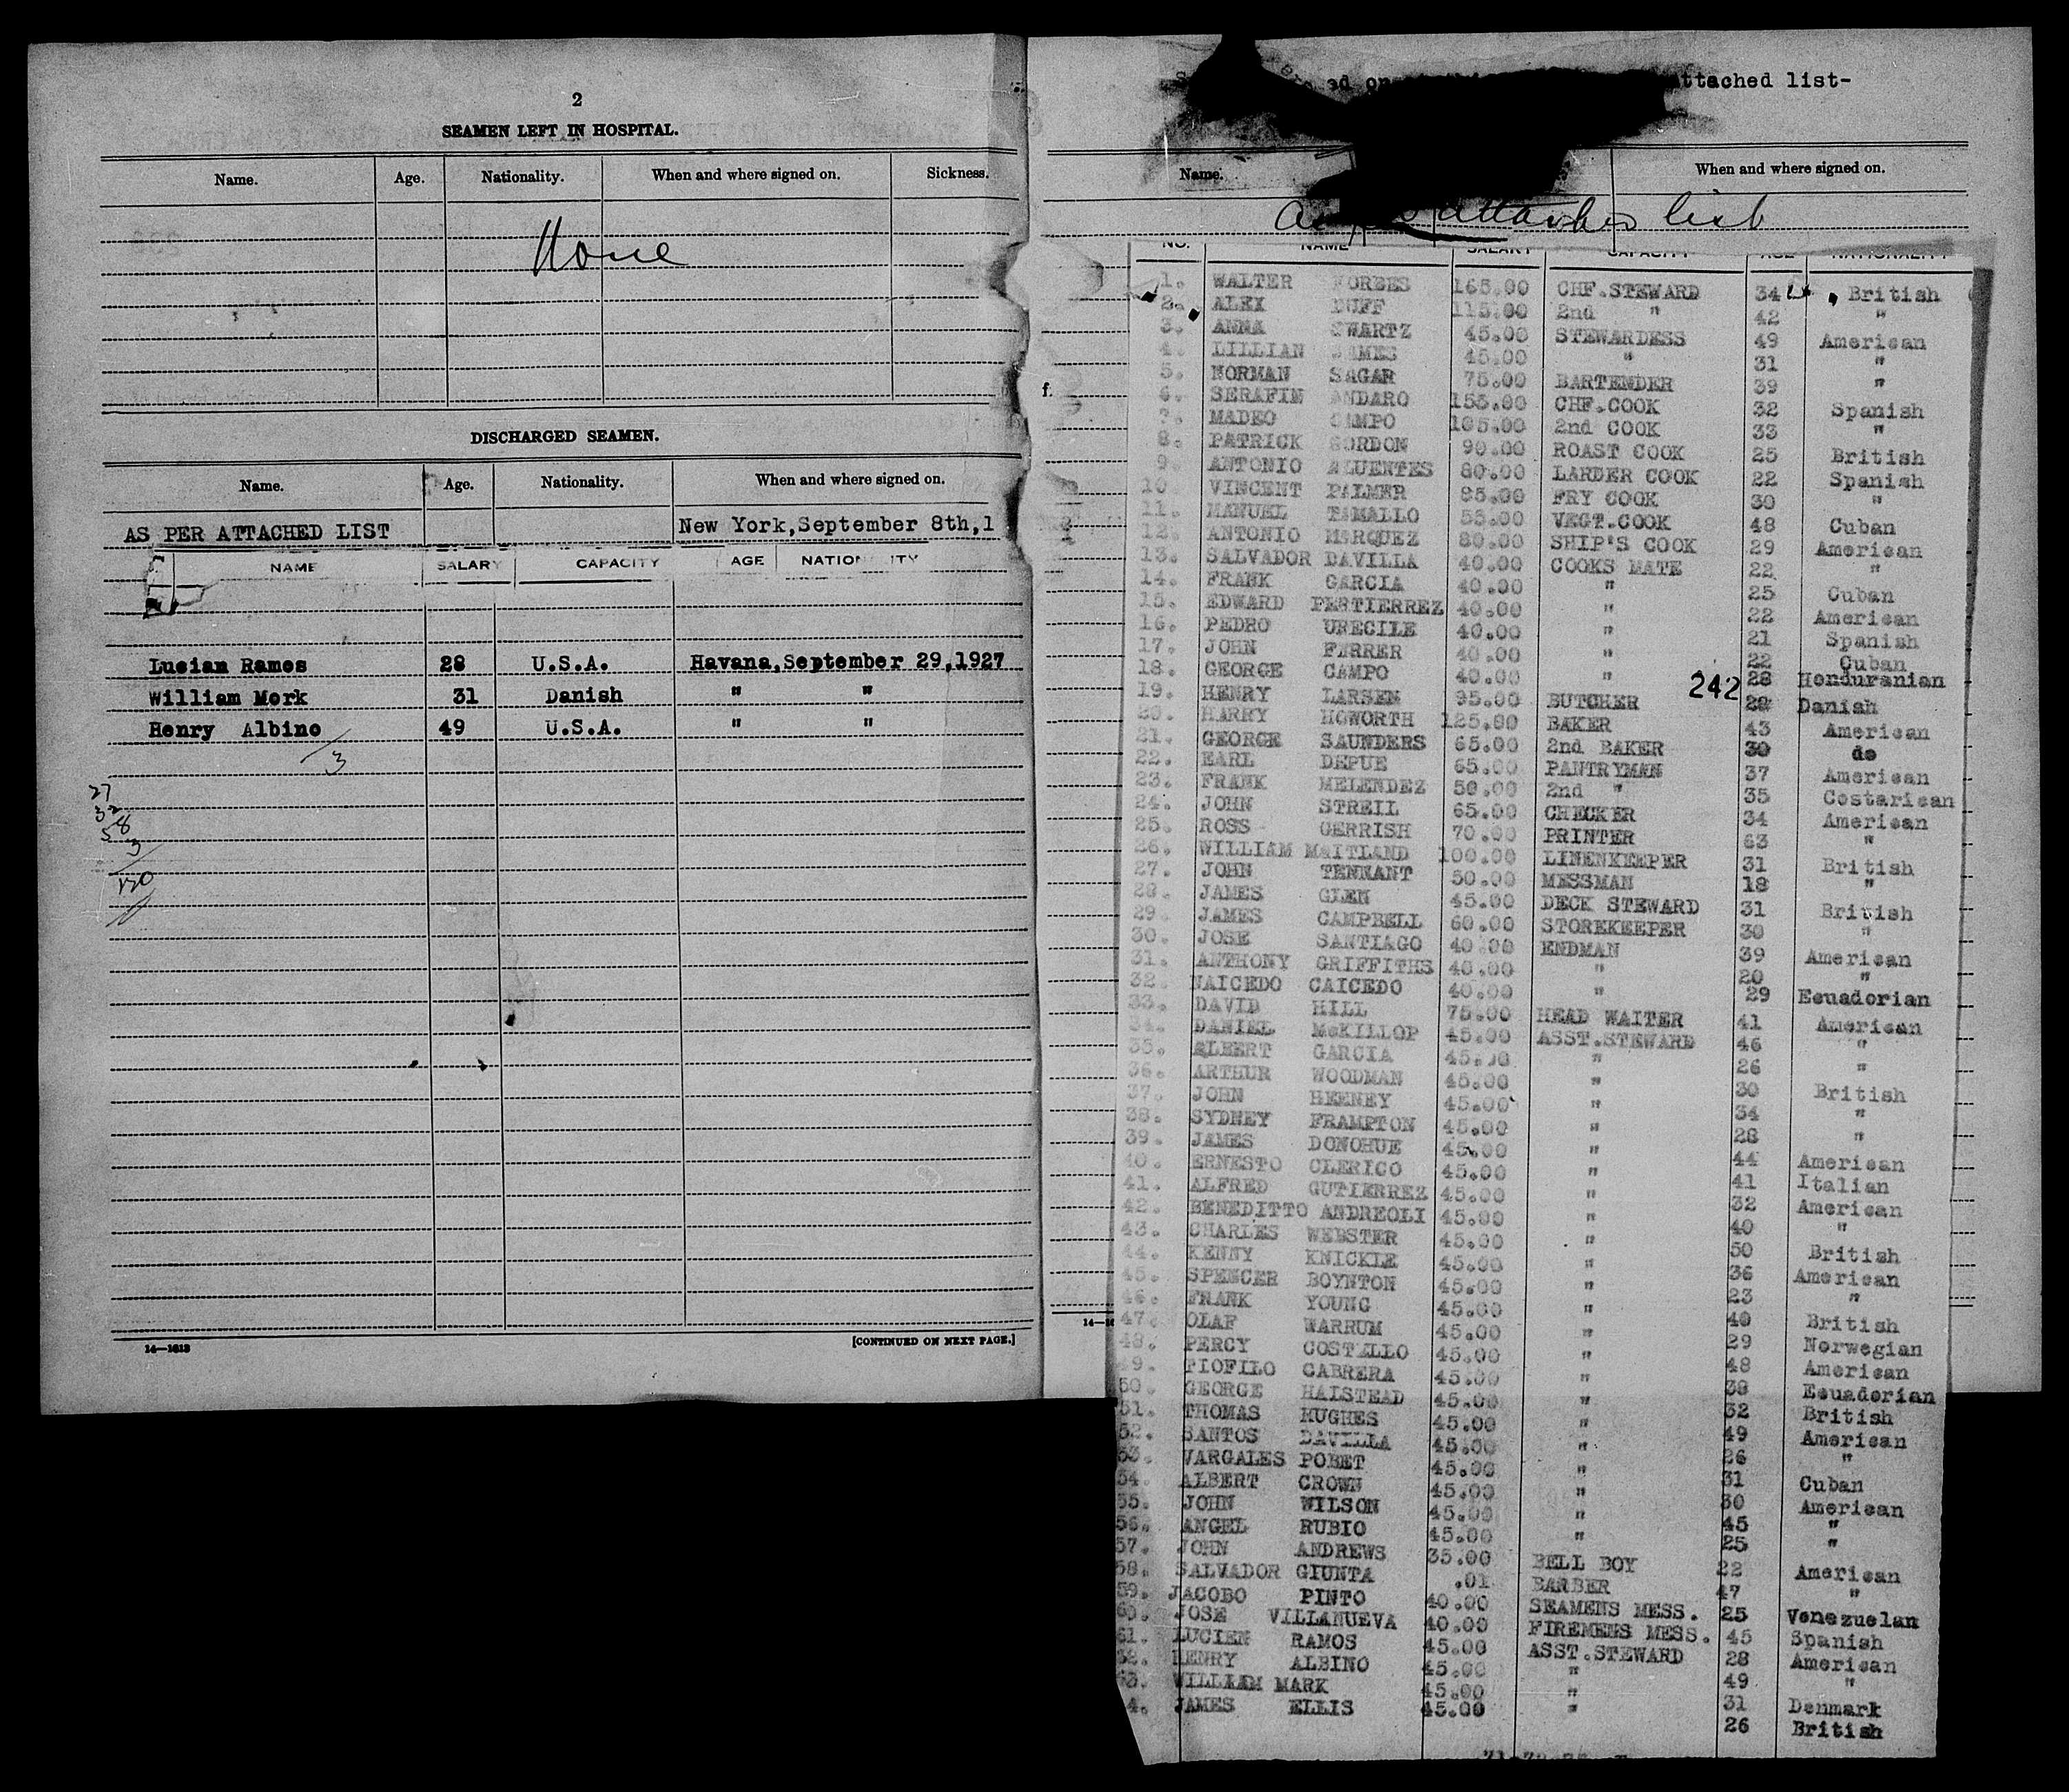 2
SEAMEN LEFT IN HOSPITAL.
Name. Age. Nationality. When and where signed on. Sickness.
None
DISCHARGED SEAMEN.
Name. Age. Nationality. When and where signed on.
AS PER ATTACHED LIST New York, September 8th, 1
NAME SALARY CAPACITY AGE NATION ITY
Lucian Ramos 28 U.S.A. Havana, September 29, 1927
William Mork 31 Danish " "
Henry Albino 49 U.S.A. " "
3
27
32
58
3
120
14—1613
[CONTINUED ON NEXT PAGE.]
attached list-
Name. When and where signed on.
attached list
f.
NO. NAME SALARY CAPACITY AGE NATIONALITY
1. WALTER FORBES 165.00 CHF.STEWARD 34 British
2. ALEX DUFF 115.00 2nd " 42 "
3. ANNA SWARTZ 45.00 STEWARDESS 49 American
4. LILLIAN JAMES 45.00 " 31 "
5. NORMAN SAGAR 75.00 BARTENDER 39 "
6. SERAFIN ANDARO 155.00 CHF.COOK 32 Spanish
7. MADEO CAMPO 105.00 2nd COOK 33 "
8. PATRICK GORDON 90.00 ROAST COOK 25 British
9. ANTONIO 80.00 LARDER COOK 22 Spanish
10 VINCENT PALMER 95.00 FRY COOK 30 "
11. MANUEL TAMALLO 55.00 VEGT.COOK 48 Cuban
12. ANTONIO MARQUEZ 80.00 SHIP'S COOK 29 American
13. SALVADOR DAVILLA 40.00 COOKS MATE 22 "
14. FRANK GARCIA 40.00 " 25 Cuban
15. EDWARD PESTIERREZ 40.00 " 22 American
16. PEDRO URECILE 40.00 " 21 Spanish
17. JOHN FERRER 40.00 " 22 Cuban
18. GEORGE CAMPO 40.00 " 28 Honduranian
242
19. HENRY LARSEN 95.00 BUTCHER 28 Danish
20. HARRY HOWORTH 125.00 BAKER 43 American
21. GEORGE SAUNDERS 65.00 2nd BAKER 30 do
22. EARL DEPUE 65.00 PANTRYMAN 37 American
23. FRANK MELENDEZ 50.00 2nd " 35 Costarican
24. JOHN STREIL 65.00 CHECKER 34 American
25. ROSS GERRISH 70.00 PRINTER 63 "
26. WILLIAM MAITLAND 100.00 LINENKEEPER 31 British
27. JOHN TENNANT 50.00 MESSMAN 18 "
28. JAMES GLEN 45.00 DECK STEWARD 31 British
29. JAMES CAMPBELL 60.00 STOREKEEPER 30 "
30. JOSE SANTIAGO 40.00 ENDMAN 39 American
31. ANTHONY GRIFFITHS 40.00 " 20 "
32. NAICEDO CAICEDO 40.00 " 29 Ecuadorian
33. DAVID HILL 75.00 HEAD WAITER 41 American
34. DANIEL McKILLOP 45.00 ASST.STEWARD 46 "
35. ALBERT GARCIA 45.00 " 26 "
36. ARTHUR WOODMAN 45.00 " 30 British
37. JOHN HEENEY 45.00 " 34 "
38. SYDNEY FRAMPTON 45.00 " 28 "
39. JAMES DONOHUE 45.00 " 44 American
40. ERNESTO CLERICO 45.00 " 41 Italian
41. ALFRED GUTIERREZ 45.00 " 32 American
42. BENEDITTO ANDREOLI 45.00 " 40 "
43. CHARLES WEBSTER 45.00 " 50 British
44. KENNY KNICKLE 45.00 " 36 American
45. SPENCER BOYNTON 45.00 " 23 "
46. FRANK YOUNG 45.00 " 40 British
47. OLAF WARRUM 45.00 " 29 Norwegian
48. PERCY COSTELLO 45.00 " 48 American
49. FIOFILO CABRERA 45.00 " 38 Ecuadorian
50. GEORGE HALSTEAD 45.00 " 32 British
51. THOMAS HUGHES 45.00 " 49 American
52. SANTOS DAVILLA 45.00 " 26 "
53. VARGALES POBET 45.00 " 31 Cuban
54. ALBERT CROWN 45.00 " 30 American
55. JOHN WILSON 45.00 " 45 "
56. ANGEL RUBIO 45.00 " 25 "
57. JOHN ANDREWS 35.00 BELL BOY 22 American
58. SALVADOR GIUNTA .01 BARBER 47 "
59. JACOBO PINTO 40.00 SEAMENS MESS. 25 Venezuelan
60. JOSE VILLANUEVA 40.00 FIREMENS MESS. 45 Spanish
61. LUCIEN RAMOS 45.00 ASST.STEWARD 28 American
62. HENRY ALBINO 45.00 " 49 "
63. WILLIAM MARK 45.00 " 31 Denmark
4. JAMES ELLIS 45.00 " 26 British